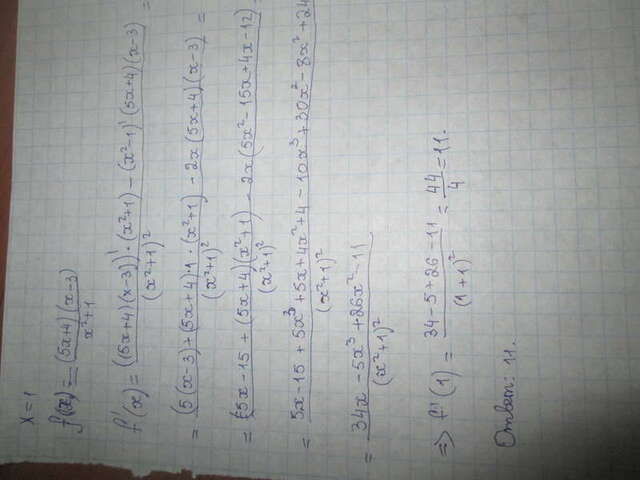 x=1
f(x) = (5x+4)(x-3) / x²+1
f'(x) = ((5x+4)(x-3))'·(x²+1) - (x²-1)'(5x+4)(x-3) / (x²+1)² =
= (5(x-3)+(5x+4)·1·(x²+1) - 2x(5x+4)(x-3) / (x²+1)² =
= (5x-15+(5x+4)(x²+1) - 2x(5x²-15x+4x-12) / (x²+1)²
= 5x-15+5x³+5x+4x²+4-10x³+30x²-8x²+24 / (x²+1)²
= 34x-5x³+26x²-11 / (x²+1)²
=> f'(1) = 34-5+26-11 / (1+1)² = 44/4 = 11.
Ответ: 11.